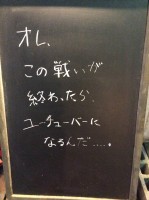 オレ、
この戦いが
終わったら
ユーチューバーに
なるんだ……。